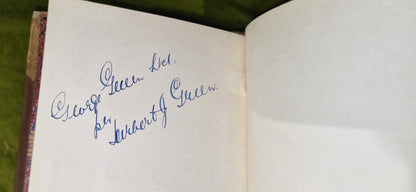 George Green Decd.
per
Herbert J Green.